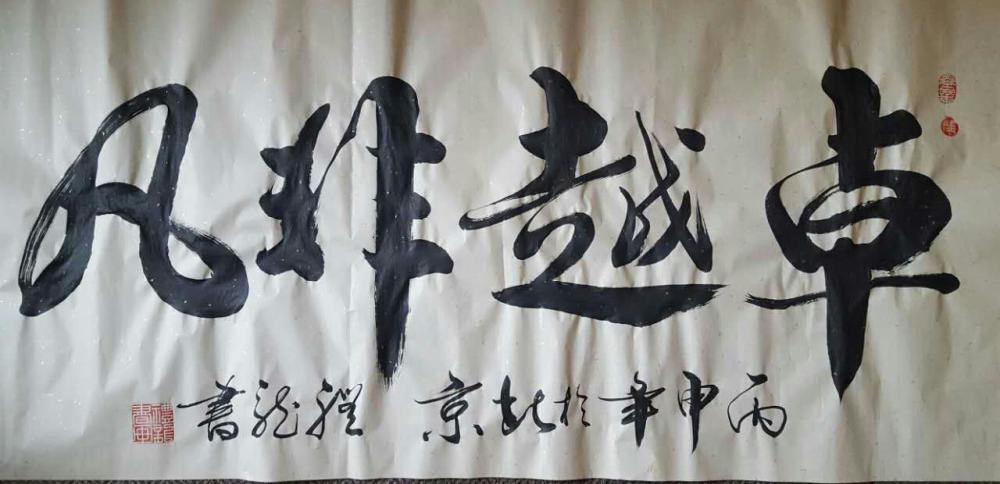 卓越非凡
丙申年於北京 龍書